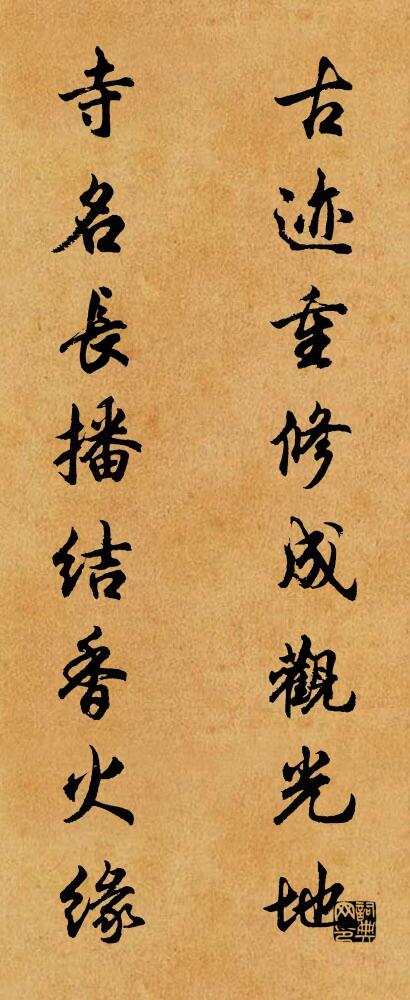 古迹重修成觀光地
寺名長播结香火缘
詞典网